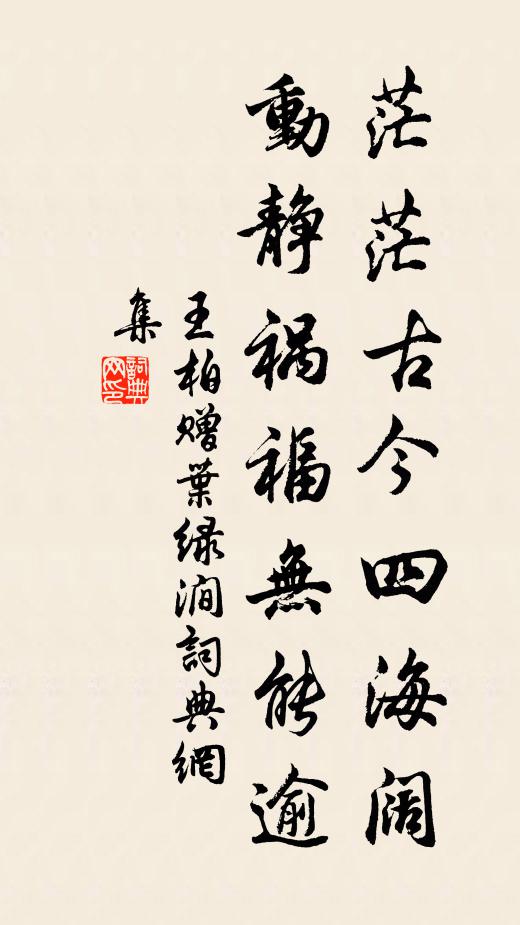 茫茫古今四海阔
動静禍福無能逾
王柏赠葉绿澗詞典網
集
詞典
网印